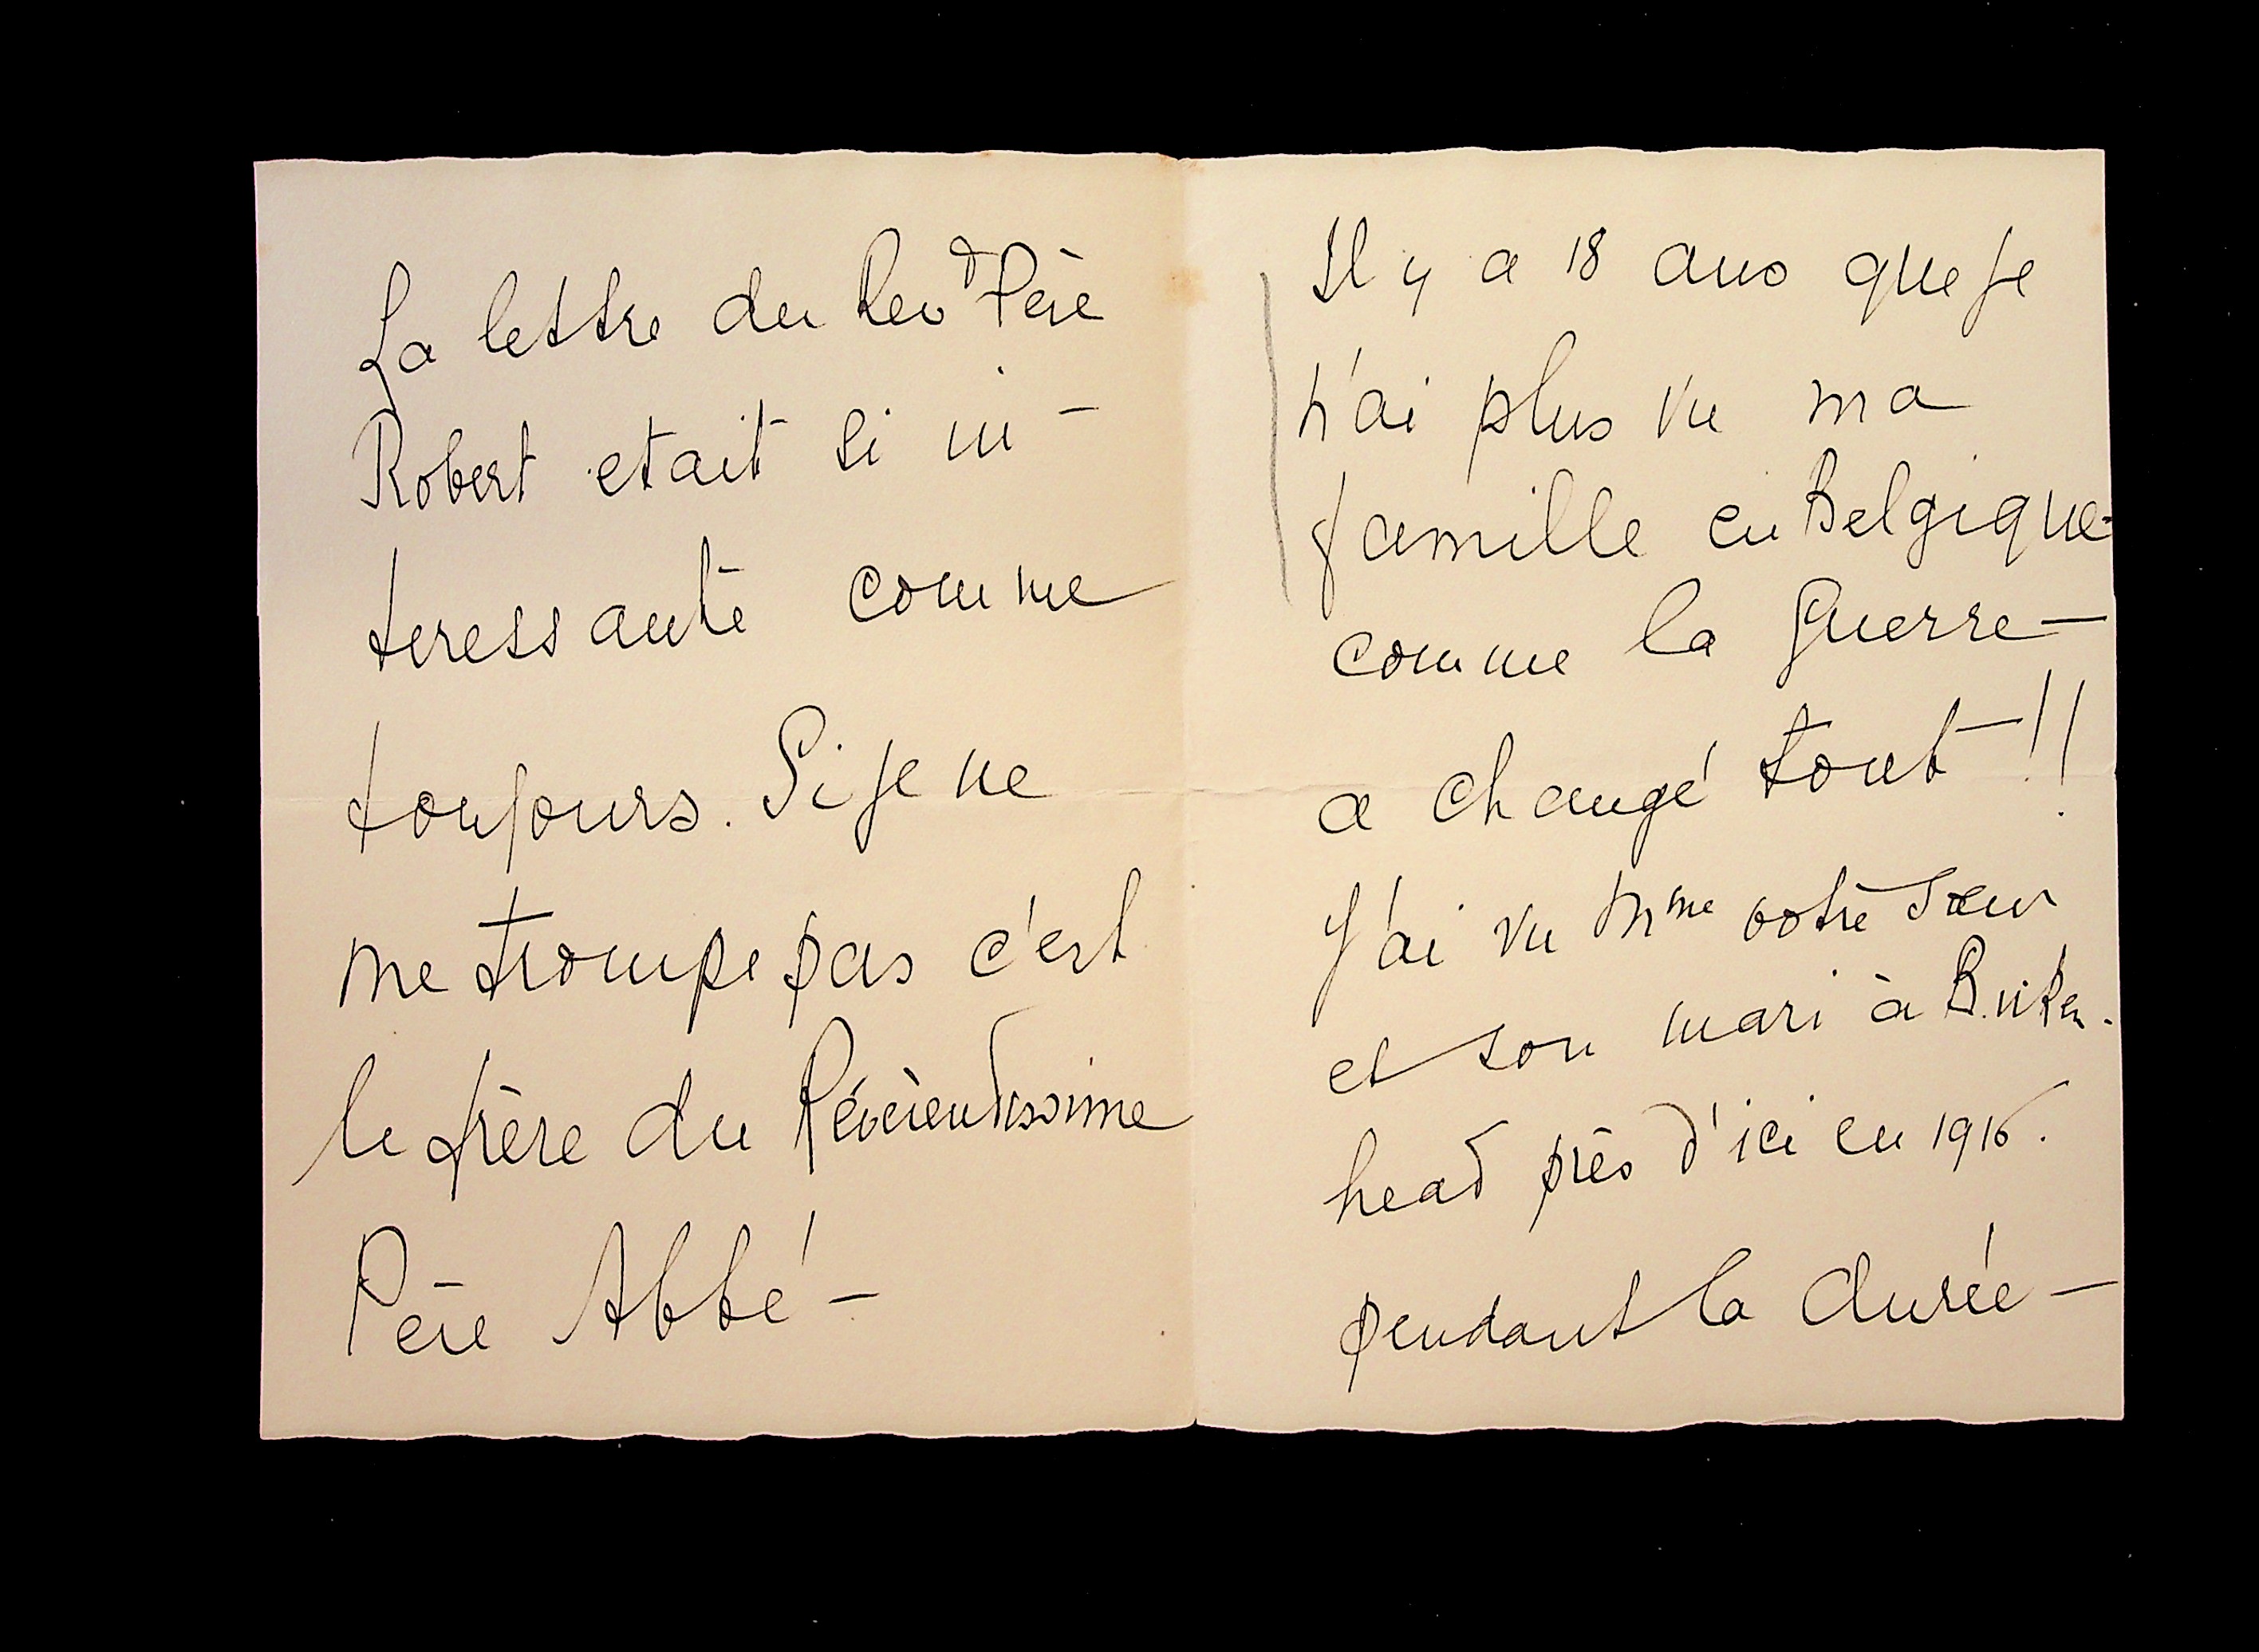 La lettre du Rev d Père
Robert etait si in-
teressante comme
toujours. Si je ne
me trompe pas c'est
le frère du Révérendissime
Père Abbé —
Il y a 18 ans que je
n'ai plus vu ma
famille en Belgique -
comme la guerre —
a changé tout !!
J'ai vu Mme votre sœur
et son mari à Birken-
head près d'ici en 1916.
pendant la durée —